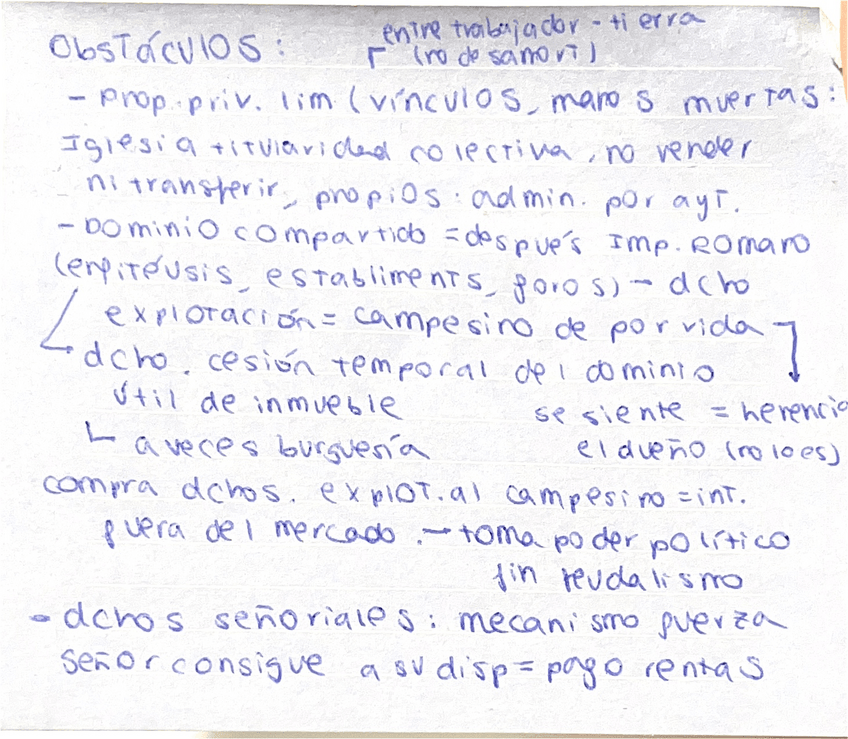 entre trabajador - tierra
ObsTáculos: (no desamort)
- prop. priv. lim (vínculos, manos muertas:
Iglesia titularidad colectiva, no vender
ni transferir, propios: admin. por ayt.
- Dominio compartido = después Imp. Romano
(enfitéusis, establiments, foros) - dcho
explotación = campesino de por vida
dcho. cesión temporal del dominio
útil de inmueble
se siente = herencia
a veces burguesía
el dueño (no lo es)
compra dchos. explot. al campesino = int.
fuera del mercado. - toma poder político
fin feudalismo
- dchos señoriales: mecanismo fuerza
señor consigue a su disp = pago rentas